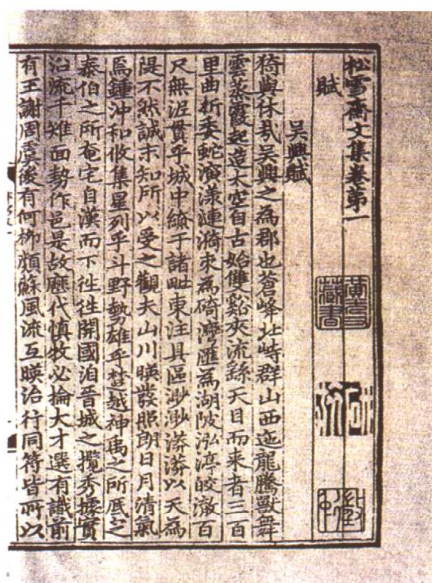 松雪齋文集卷第一
賦
吳興賦
猗與休哉吳興之為郡也蒼峰北峙群山西迤龍騰獸舞
雲蒸霞起造太空自古始雙谿夾流繇天目而來者三百
里曲折委蛇演漾漣漪束為碕灣匯為湖陂泓渟皎澈百
尺無泥貫乎城中繚于諸毗東注具區渺渺漭漭以天為
隄不然誠未知所以受之觀夫山川暎發照朗日月清氣
焉鍾沖和攸集星列乎斗野勢雄乎楚越神禹之所底定
泰伯之所奄宅自漢而下往往開國洎晉城之攬秀據實
沿流千雉面勢作邑是故歷代慎牧必掄大才選有識前
有王謝周虞後有何柳顏蘇風流互暎治行同符皆所以